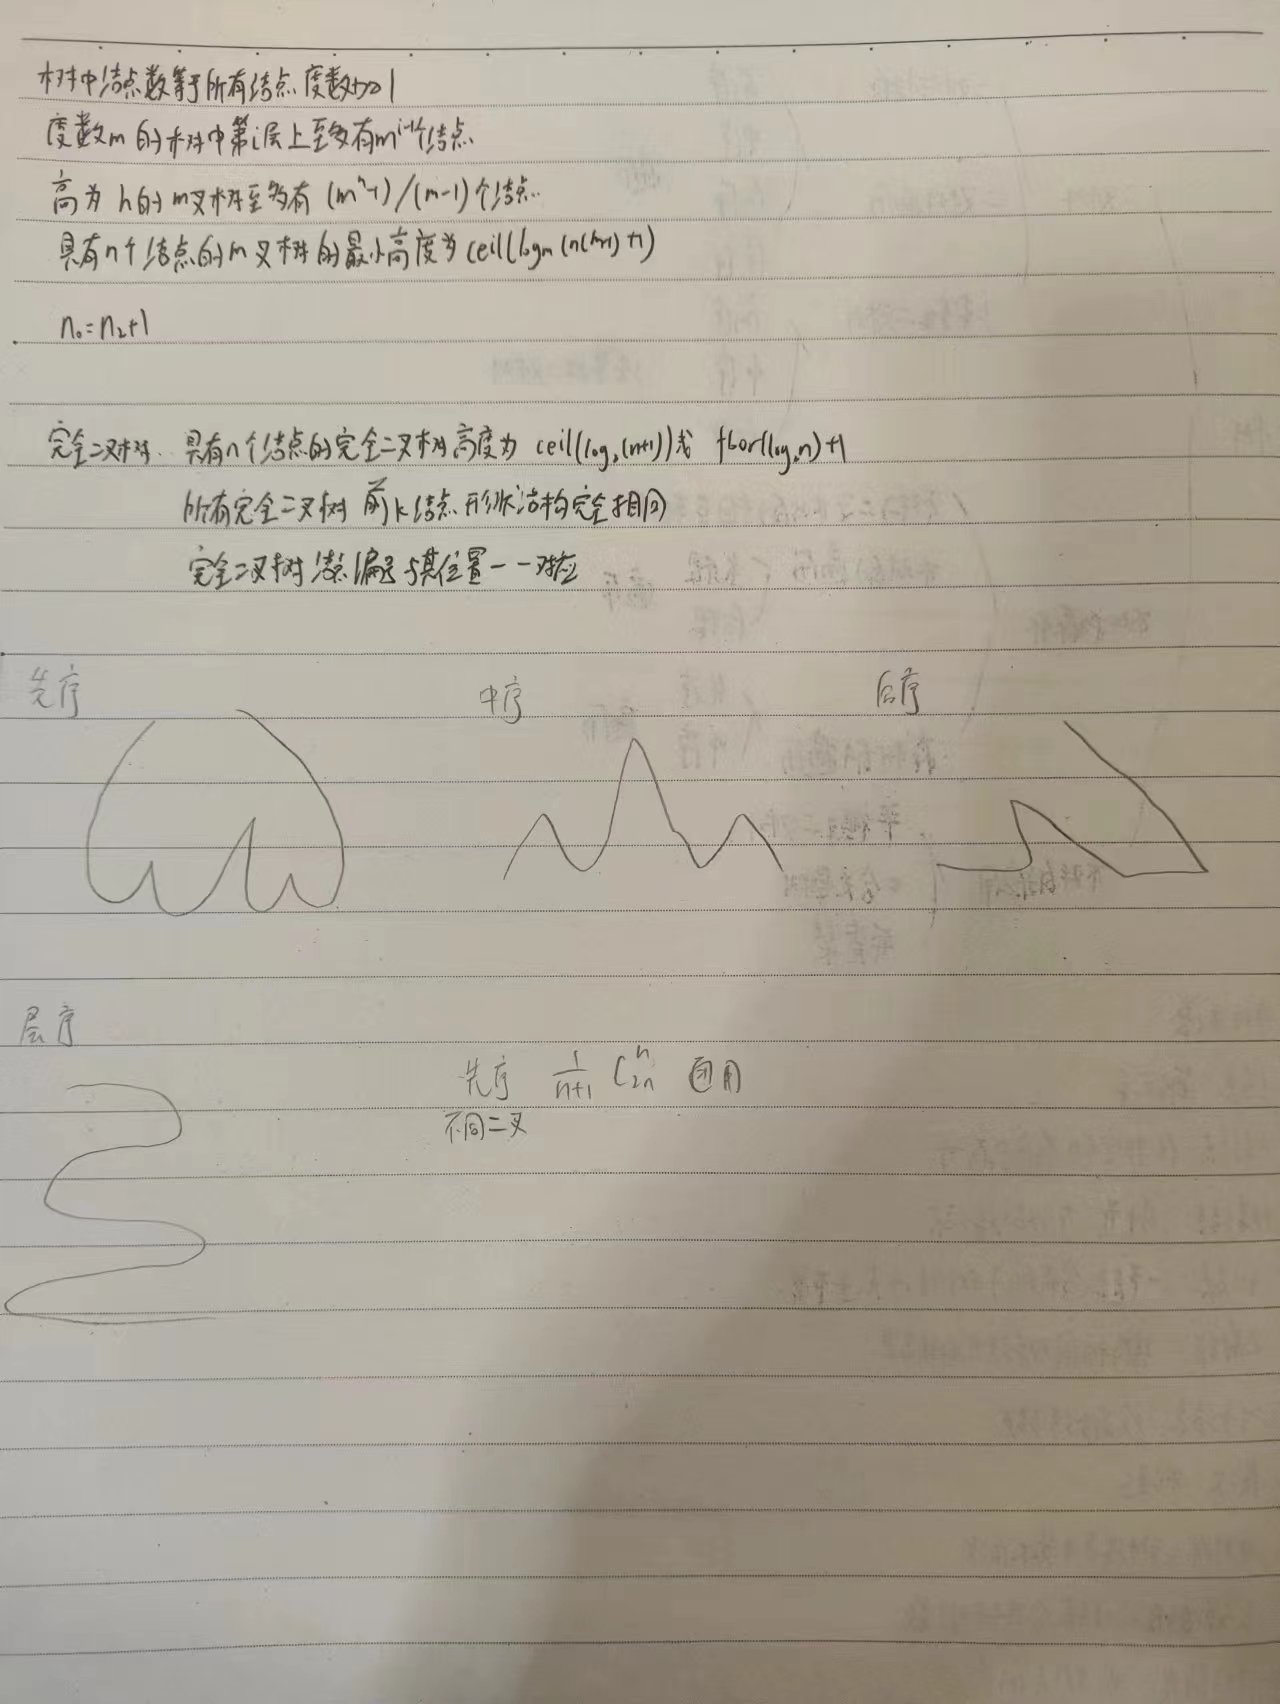 树中结点数等于所有结点度数加1
度数m的树中第i层上至多有m^(i-1)个结点
高为h的m叉树至多有(m^h-1)/(m-1)个结点
具有n个结点的m叉树的最小高度为ceil(logm(n(m-1)+1)
n₀=n₂+1
完全二叉树 具有n个结点的完全二叉树高度为ceil(log₂(n+1))或floor(log₂n)+1
所有完全二叉树前k结点形状结构完全相同
完全二叉树结点编号与其位置一一对应
先序 中序 后序
层序
先序 1/(n+1) C_{2n}^{n} 通用
不同二叉